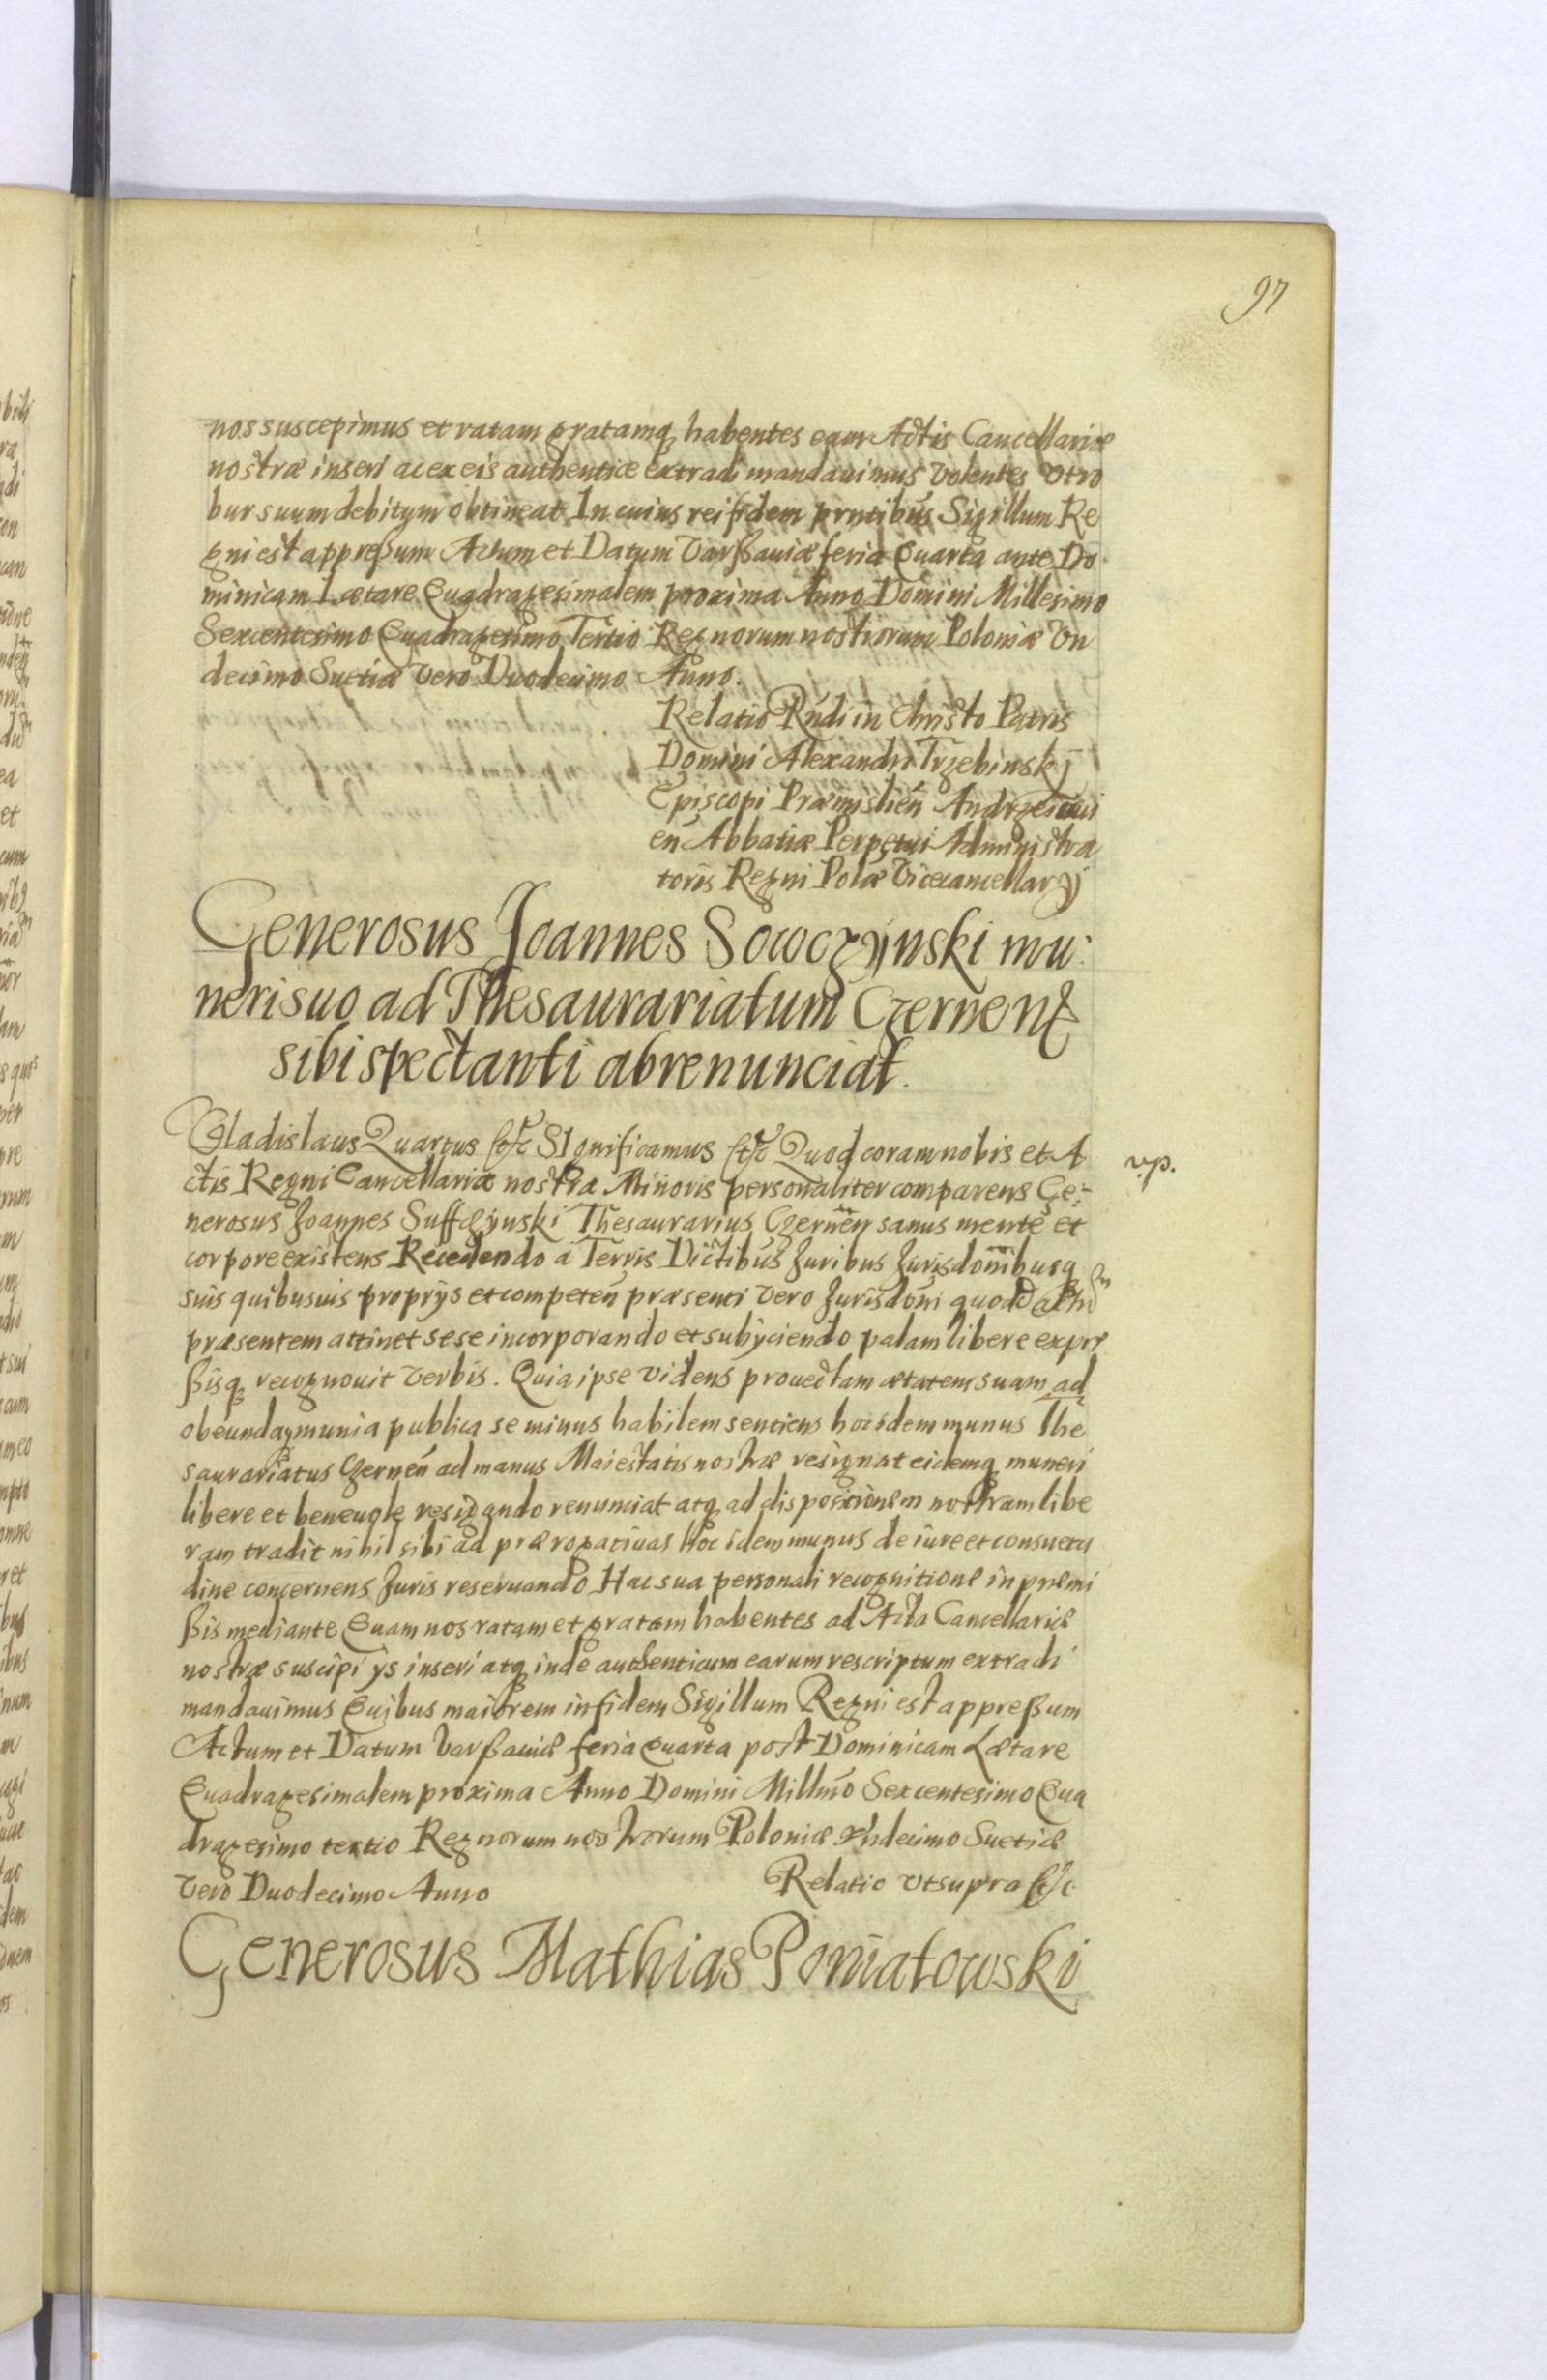 97
nos suscepimus et ratam gratamq habentes eam Actis Cancellariæ
nostræ inseri ac ex eis authentice extradi mandauimus volentes vt ro
bur suum debitum obtineat In cuius rei fidem pntibus Sigillum Re
gni est appreßum Actum et Datum Varßauiæ feria Quarta ante Do
minicam Lætare Quadragesimalem proxima Anno Domini Millesimo
Sexcentesimo Quadragesimo Tertio Regnorum nostrorum Poloniæ Vn
decimo Suetiæ vero Duodecimo Anno.
Relatio Rndi in Christo Patris
Domini Alexandri Trzebinskj
Episcopi Præmislien Andrzeioui
en Abbatiæ Perpetui Administra
toris Regni Polæ Vicecancellarÿ
Generosus Joannes Sowczÿnski mu:
neri suo ad Thesaurariatum Czernen
sibi spectanti abrenunciat.
Vladislaus Quartus etc Significamus etc Quod coram nobis et A
ctis Regni Cancellariæ nostra Minoris personaliter comparens Ge:
nerosus Joannes Suffczÿnski Thesaurarius Czernen sanus mente et
corpore existens Recedendo a Terris Dictibus Juribus Jurisdonibusq
suis quibusuis proprÿs et competen præsenti vero Jurisdoni quod
præsentem attinet sese incorporando et subÿciendo palam libere expre
ßisq recognouit verbis. Quia ipse videns prouectam ætatem suam ad
obeunda munia publica se minus habilem sentiens hoc idem munus The
saurariatus Czernen ad manus Maiestatis nostræ resignat eidemq muneri
libere et beneuole resignando renunciat atq ad dispositionem nostram libe
ram tradit nihil sibi ad prærogatiuas hoc idem munus de iure et consuetu
dine concernens Juris reseruando Hac sua personali recognitione in præmi
ßis mediante Quam nos ratam et gratam habentes ad Acta Cancellariæ
nostræ suscipi ÿs inseri atq inde authenticum earum rescriptum extradi
mandauimus Quibus maiorem in fidem Sigillum Regni est appreßum
Actum et Datum Varßauiæ feria quarta post Dominicam Lætare
Quadragesimalem proxima Anno Domini Millmo Sexcentesimo Qua
dragesimo tertio Regnorum nostrorum Poloniæ Vndecimo Suetiæ
vero Duodecimo Anno Relatio vt supra etc
Generosus Mathias Poniatowski